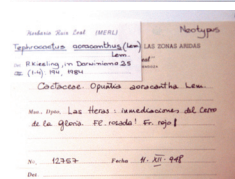 Herbario Ruiz Leal (MERL)
Neotypus
Tephrocactus aoracanthus (Lem)
Lem.
LAS ZONAS ARIDAS
R Kiesling, in Darwiniana 25
(1-4) 1984
Cactaceae. Opuntia aoracantha Lem.
Las Heras: inmediaciones del Cerro
de la Gloria. Fl. rosada! Fr. rojo!
No. 12767 Fecha
Det